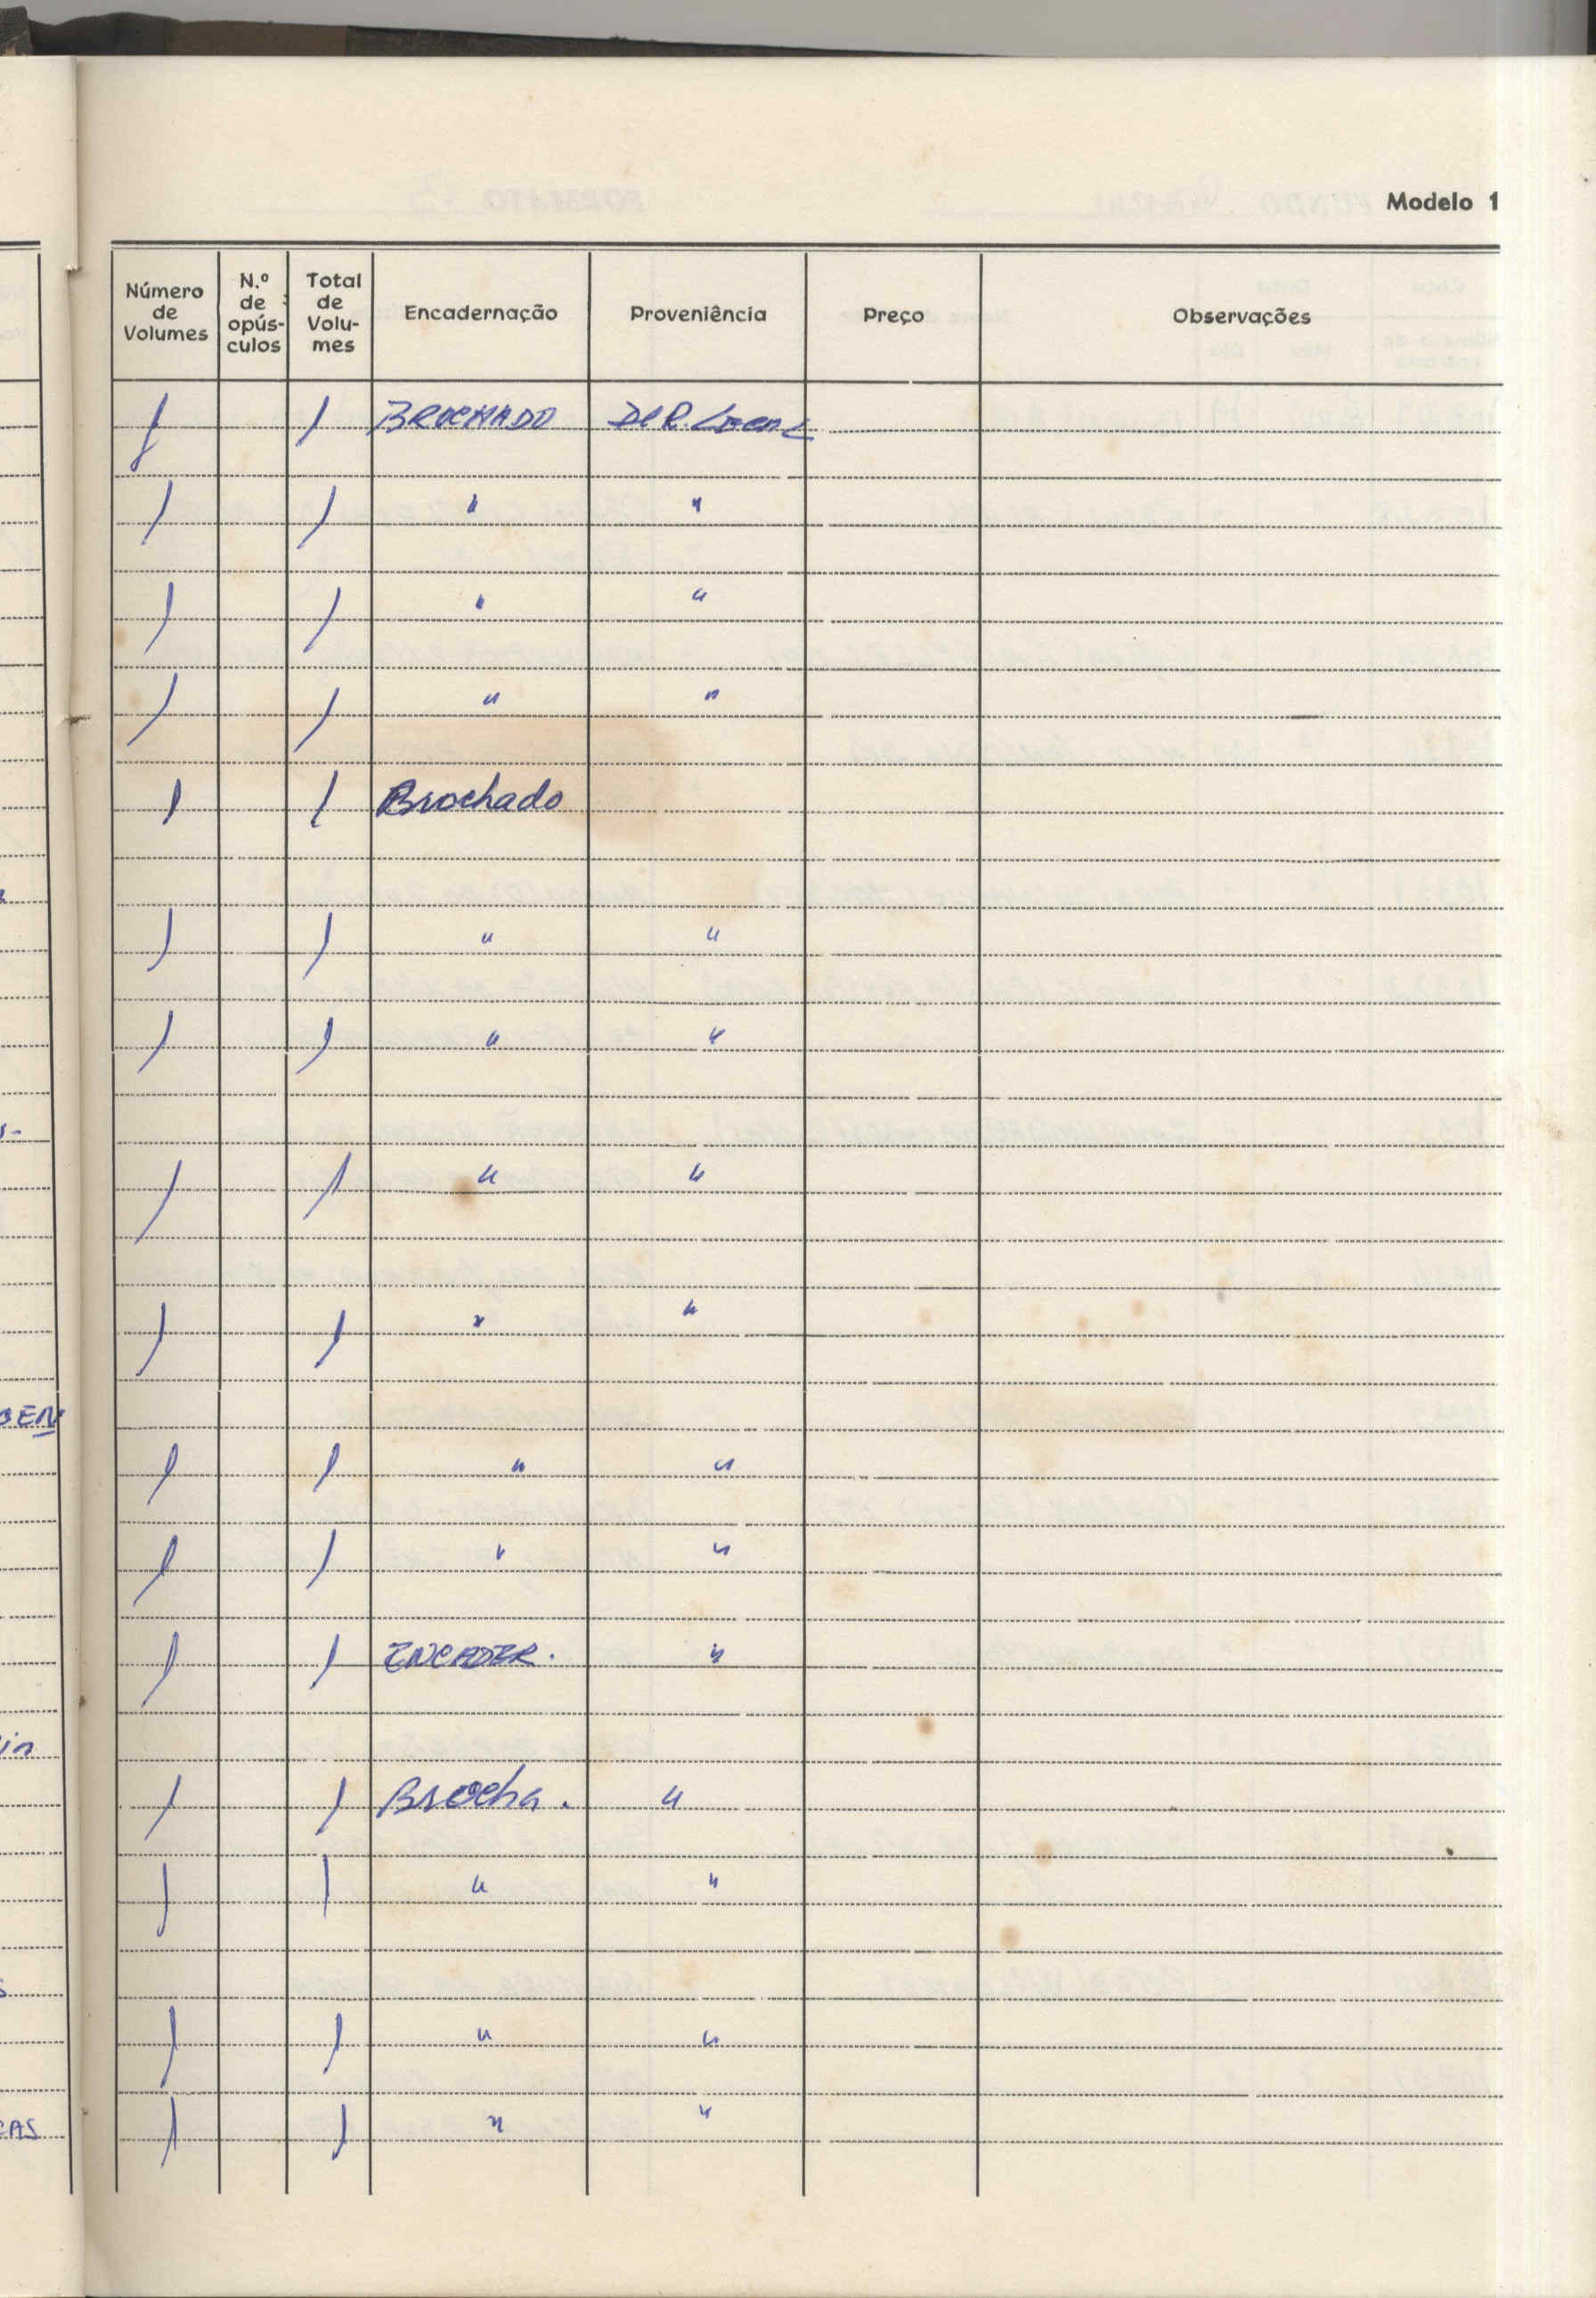 Modelo 1
Número de Volumes | N.º de opús-culos | Total de Volu-mes | Encadernação | Proveniência | Preço | Observações
1 | 1 | BROCHADO | 
1 | 1 | " | "
1 | 1 | " | "
1 | 1 | " | "
1 | 1 | Brochado
1 | 1 | " | "
1 | 1 | " | "
1 | 1 | " | "
1 | 1 | " | "
GEN
1 | 1 | " | "
1 | 1 | " | "
1 | 1 | ENCADER. | "
in
1 | 1 | Brocha. | "
1 | 1 | " | "
1 | 1 | " | "
CAS | 1 | 1 | " | "